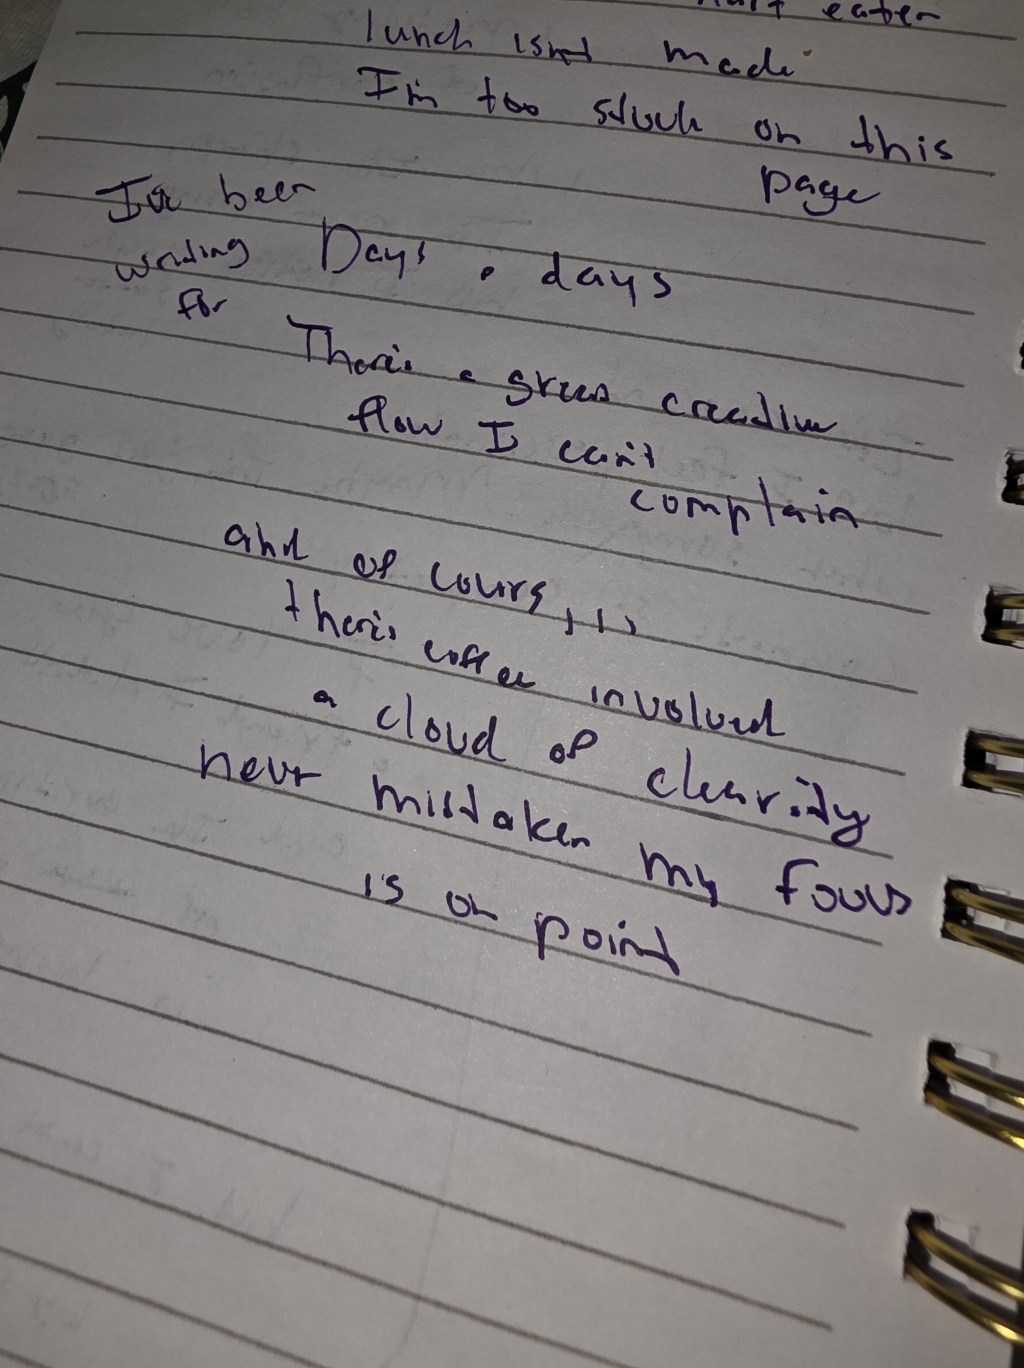 half eaten
lunch isnt made
I'm too stuck on this
page
I've been
writing Days, days
for
There's a green creative
flow I can't
complain
and of cours,,,
there's coffee involved
a cloud of clearity
never mistaken my focus
is on point